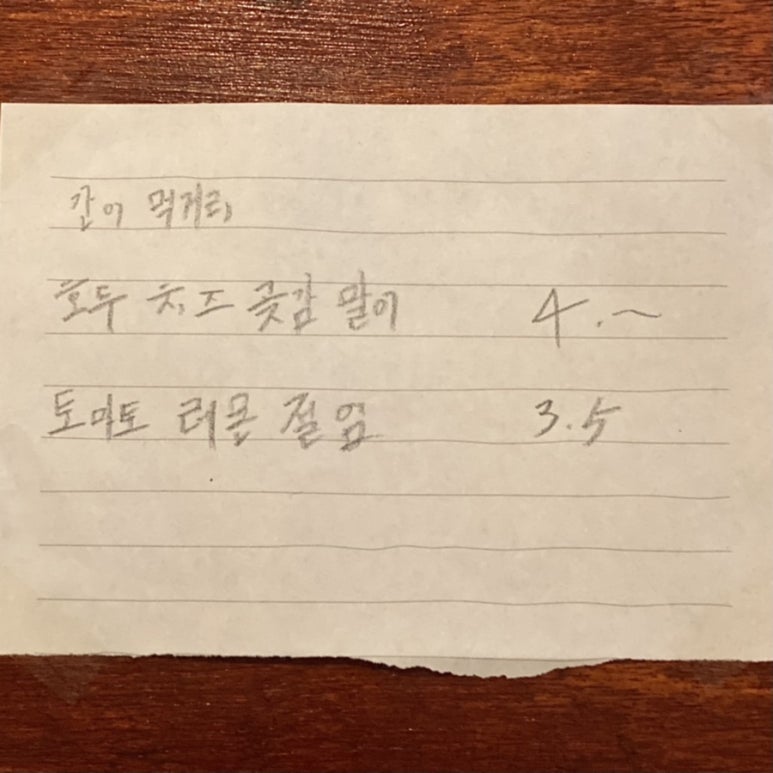 간이 먹거리
호두 치즈 곶감 말이 4.~
토마토 레몬 절임 3.5